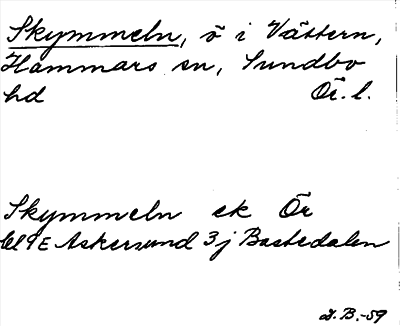 Skymmeln, ö i Vättern,
Hammars sn, Sundbo
hd Ör. l.
Skymmeln ek Ör
bl 9E Askersund 3j Bastedalen
J.B.-59